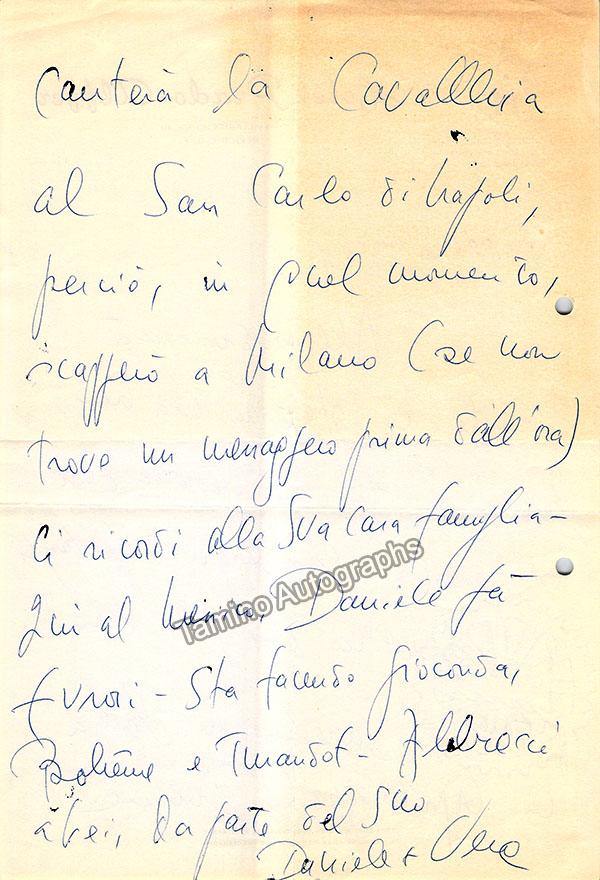 Canterà la Cavalleria
al San Carlo di Napoli,
perciò, in quel momento,
scapperò a Milano (se non
trovo un messaggero prima dall'ora)
Ci ricordi alla Sua cara famiglia -
Qui al Daniele fà
furori - Sta facendo Gioconda,
Bohême e Turandot - Abbracci
a Lei, da parte del Suo
Daniele + Vera
Tamino Autographs